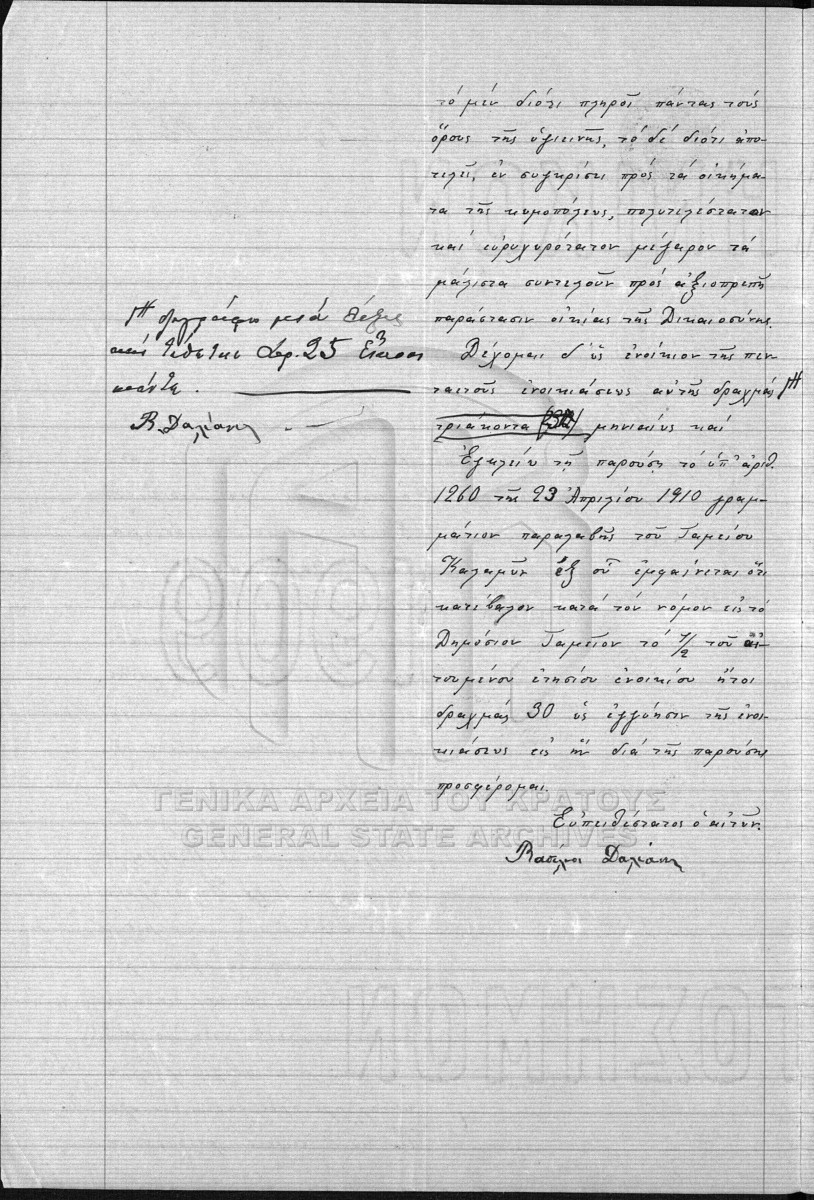 τὸ μὲν διότι πληροῖ πάντας τοὺς
ὅρους τῆς ὑγιεινῆς, τὸ δὲ διότι ἀπο-
τελεῖ, ἐν συγκρίσει πρὸς τὰ οἰκήμα-
τα τῆς κωμοπόλεως, πολυτελέστατον
καὶ εὐρυχωρότατον μέγαρον τὰ
μάλιστα συντελοῦν πρὸς ἀξιοπρεπῆ
παράστασιν οἰκίας τῆς Δικαιοσύνης.
Δέχομαι δ' ὡς ἐνοίκιον τῆς πεν-
ταετοῦς ἐνοικιάσεως αὐτῆς δραχμὰς
τριάκοντα (30) μηνιαίως καὶ
Ἐγκλείω τῇ παρούσῃ τὸ ὑπ' ἀριθ.
1260 τῆς 23 Ἀπριλίου 1910 γραμ-
μάτιον παραλαβῆς τοῦ Ταμείου
Καλαμῶν ἐξ οὗ ἐμφαίνεται ὅτι
κατέβαλον κατὰ τὸν νόμον εἰς τὸ
Δημόσιον Ταμεῖον τὸ 1/2 τοῦ αἰ-
τουμένου ἐτησίου ἐνοικίου ἤτοι
δραχμὰς 30 ὡς ἐγγύησιν τῆς ἐνοι-
κιάσεως εἰς ἣν διὰ τῆς παρούσης
προσφέρομαι.
Εὐπειθέστατος ὁ αἰτῶν.
Βασίλειος Δαλιάνης
διαγράφω μετὰ λέξεις
καὶ τίθεται Δρ. 25 Εἴκοσι
πέντε.
Β. Δαλιάνης
ΓΕΝΙΚΑ ΑΡΧΕΙΑ ΤΟΥ ΚΡΑΤΟΥΣ
GENERAL STATE ARCHIVES